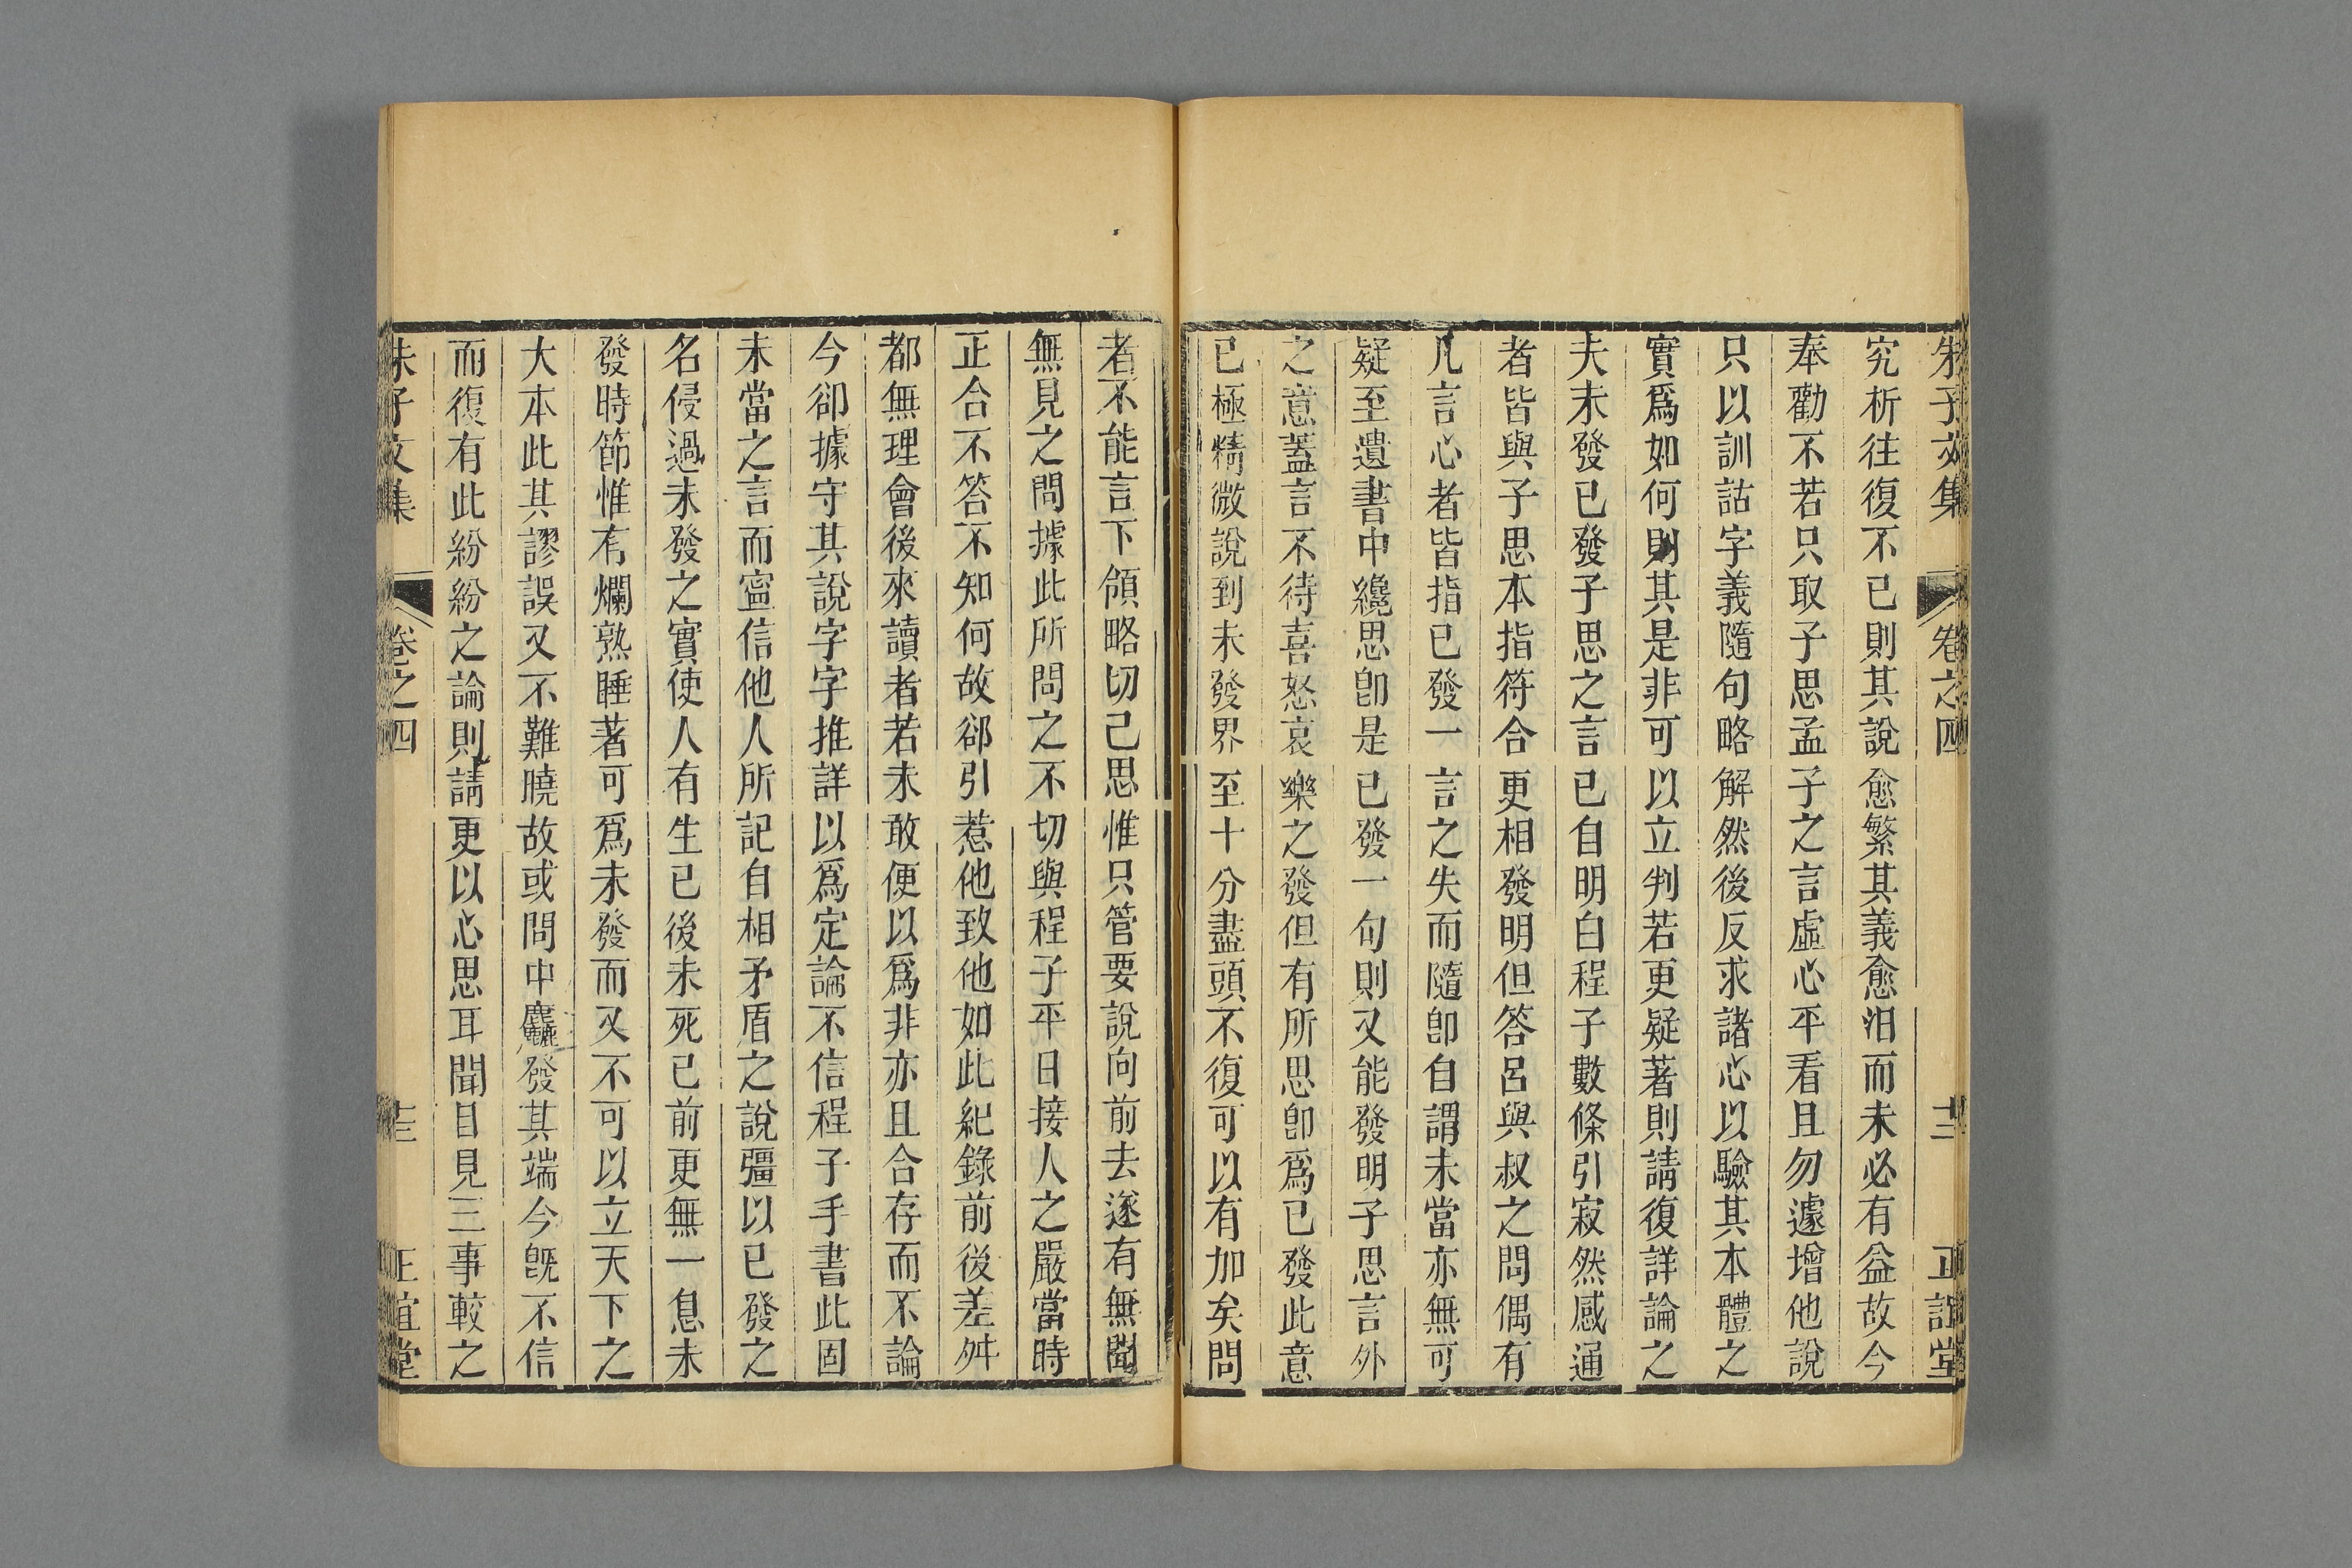 朱子文集 卷之四 十二 正誼堂
究析往復不已則其說愈繁其義愈汨而未必有益故今
奉勸不若只取子思孟子之言虛心平看且勿遽增他說
只以訓詁字義隨句略解然後反求諸心以驗其本體之
實爲如何則其是非可以立判若更疑著則請復詳論之
夫未發已發子思之言已自明白程子數條引寂然感通
者皆與子思本指符合更相發明但答呂與叔之問偶有
凡言心者皆指已發一言之失而隨卽自謂未當亦無可
疑至遺書中纔思卽是已發一句則又能發明子思言外
之意蓋言不待喜怒哀樂之發但有所思卽爲已發此意
已極精微說到未發界至十分盡頭不復可以有加矣問
者不能言下領略切己思惟只管要說向前去遂有無聞
無見之問據此所問之不切與程子平日接人之嚴當時
正合不答不知何故郤引惹他致他如此紀錄前後差舛
都無理會後來讀者若未敢便以爲非亦且合存而不論
今卻據守其說字字推詳以爲定論不信程子手書此固
未當之言而寍信他人所記自相矛盾之說彊以已發之
名侵過未發之實使人有生已後未死已前更無一息未
發時節惟有爛熟睡著可爲未發而又不可以立天下之
大本此其謬誤又不難曉故或問中麤發其端今旣不信
而復有此紛紛之論則請更以心思耳聞目見三事較之
朱子文集 卷之四 十三 正誼堂